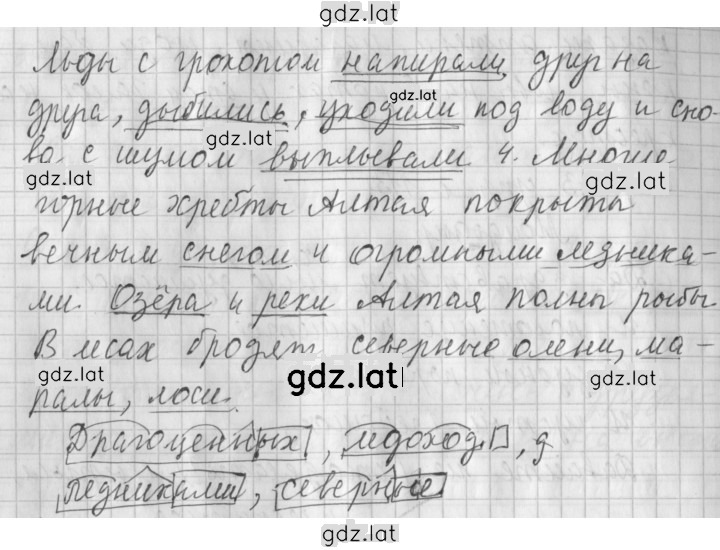 gdz.lat
Льды с грохотом напирали друг на
gdz.lat
друга, дыбились, уходили под воду и сно-
gdz.lat
ва с шумом выплывали 4. Много
gdz.lat
gdz.lat
горные хребты Алтая покрыты
вечным снегом и огромными ледника-
ми. Озёра и реки Алтая полны рыбы.
В лесах бродят северные олени, ма-
gdz.lat
gdz.lat
gdz.lat
ралы, лоси.
Драгоценных, ледоход, д
ледниками, северные
gdz.lat